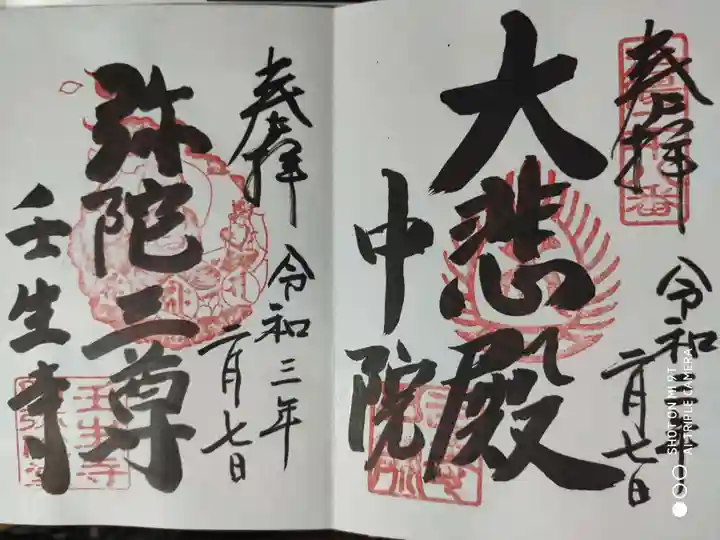 奉拝
大悲殿
中院
令和三年
二月七日
奉拝
弥陀三尊
壬生寺
令和三年
二月七日
壬生寺
SHOT ON MI 9T
AI TRIPLE CAMERA